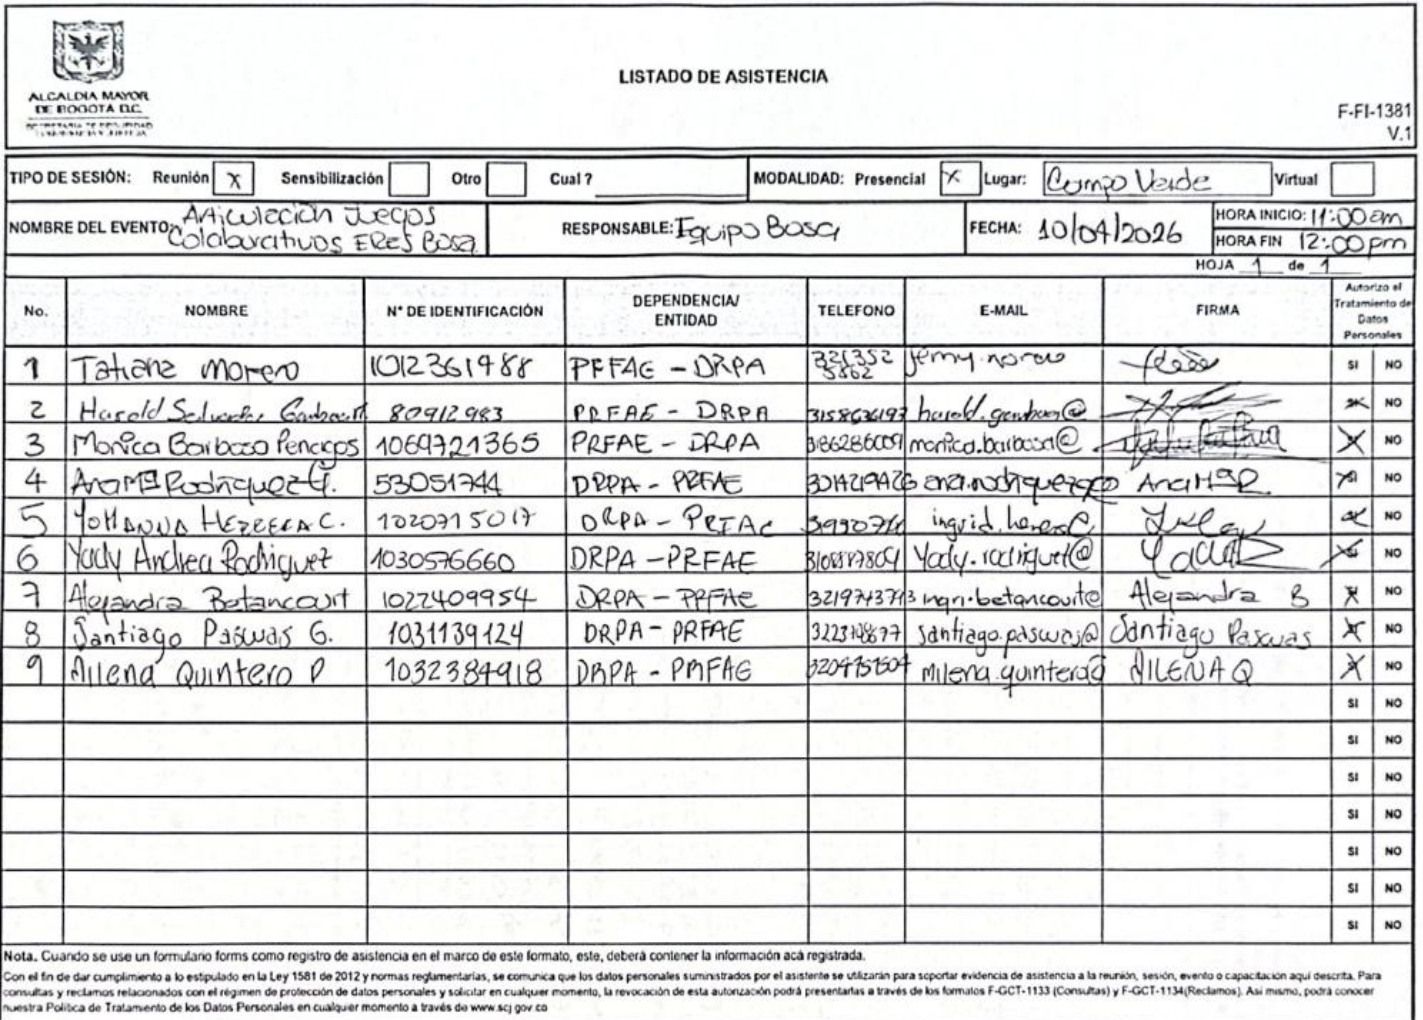 ALCALDIA MAYOR
DE BOGOTÁ D.C.
LISTADO DE ASISTENCIA
F-FI-1381
V.1
TIPO DE SESIÓN: Reunión X Sensibilización Otro Cual ? MODALIDAD: Presencial X Lugar: Campo Verde Virtual
NOMBRE DEL EVENTO: Articulación Juegos
Colaborativos EReS Bosa
RESPONSABLE: Equipo Bosa
FECHA: 10/04/2026
HORA INICIO: 11:00 am
HORA FIN 12:00 pm
HOJA 1 de 1
No. NOMBRE N° DE IDENTIFICACIÓN DEPENDENCIA/ ENTIDAD TELEFONO E-MAIL FIRMA Autorizo el Tratamiento de Datos Personales
1 Tatiana Moreno 1012361488 PRFAE - DRPA SI NO
2 Harold 80912983 PRFAE - DRPA 3158636197 NO
3 Monica Barboso Penagos 1069721365 PRFAE - DRPA 3186286009 monica.barbosa@ X NO
4 Ana Mª Rodriguez G. 53051744 DRPA - PRFAE Ana Mª R X NO
5 YOHANNA HERRERA C. 1020715017 DRPA - PRFAE NO
6 Yady Andrea Rodriguez 1030576660 DRPA - PRFAE yady.rodriguez@ X NO
7 Alejandra Betancourt 1022409954 DRPA - PRFAE 3219743793 ingri.betancourt@ Alejandra B X NO
8 Santiago Pascuas G. 1031139124 DRPA - PRFAE santiago.pascuas@ Santiago Pascuas X NO
9 Milena Quintero P 1032384918 DRPA - PRFAE milena.quintero@ MILENA Q X NO
SI NO
SI NO
SI NO
SI NO
SI NO
SI NO
SI NO
Nota. Cuando se use un formulario forms como registro de asistencia en el marco de este formato, este, deberá contener la información acá registrada.
Con el fin de dar cumplimiento a lo estipulado en la Ley 1581 de 2012 y normas reglamentarias, se comunica que los datos personales suministrados por el asistente se utilizarán para soportar evidencia de asistencia a la reunión, sesión, evento o capacitación aquí descrita. Para
consultas y reclamos relacionados con el régimen de protección de datos personales y solicitar en cualquier momento, la revocación de esta autorización podrá presentarlas a través de los formatos F-GCT-1133 (Consultas) y F-GCT-1134(Reclamos). Así mismo, podrá conocer
nuestra Política de Tratamiento de los Datos Personales en cualquier momento a través de www.scj gov co